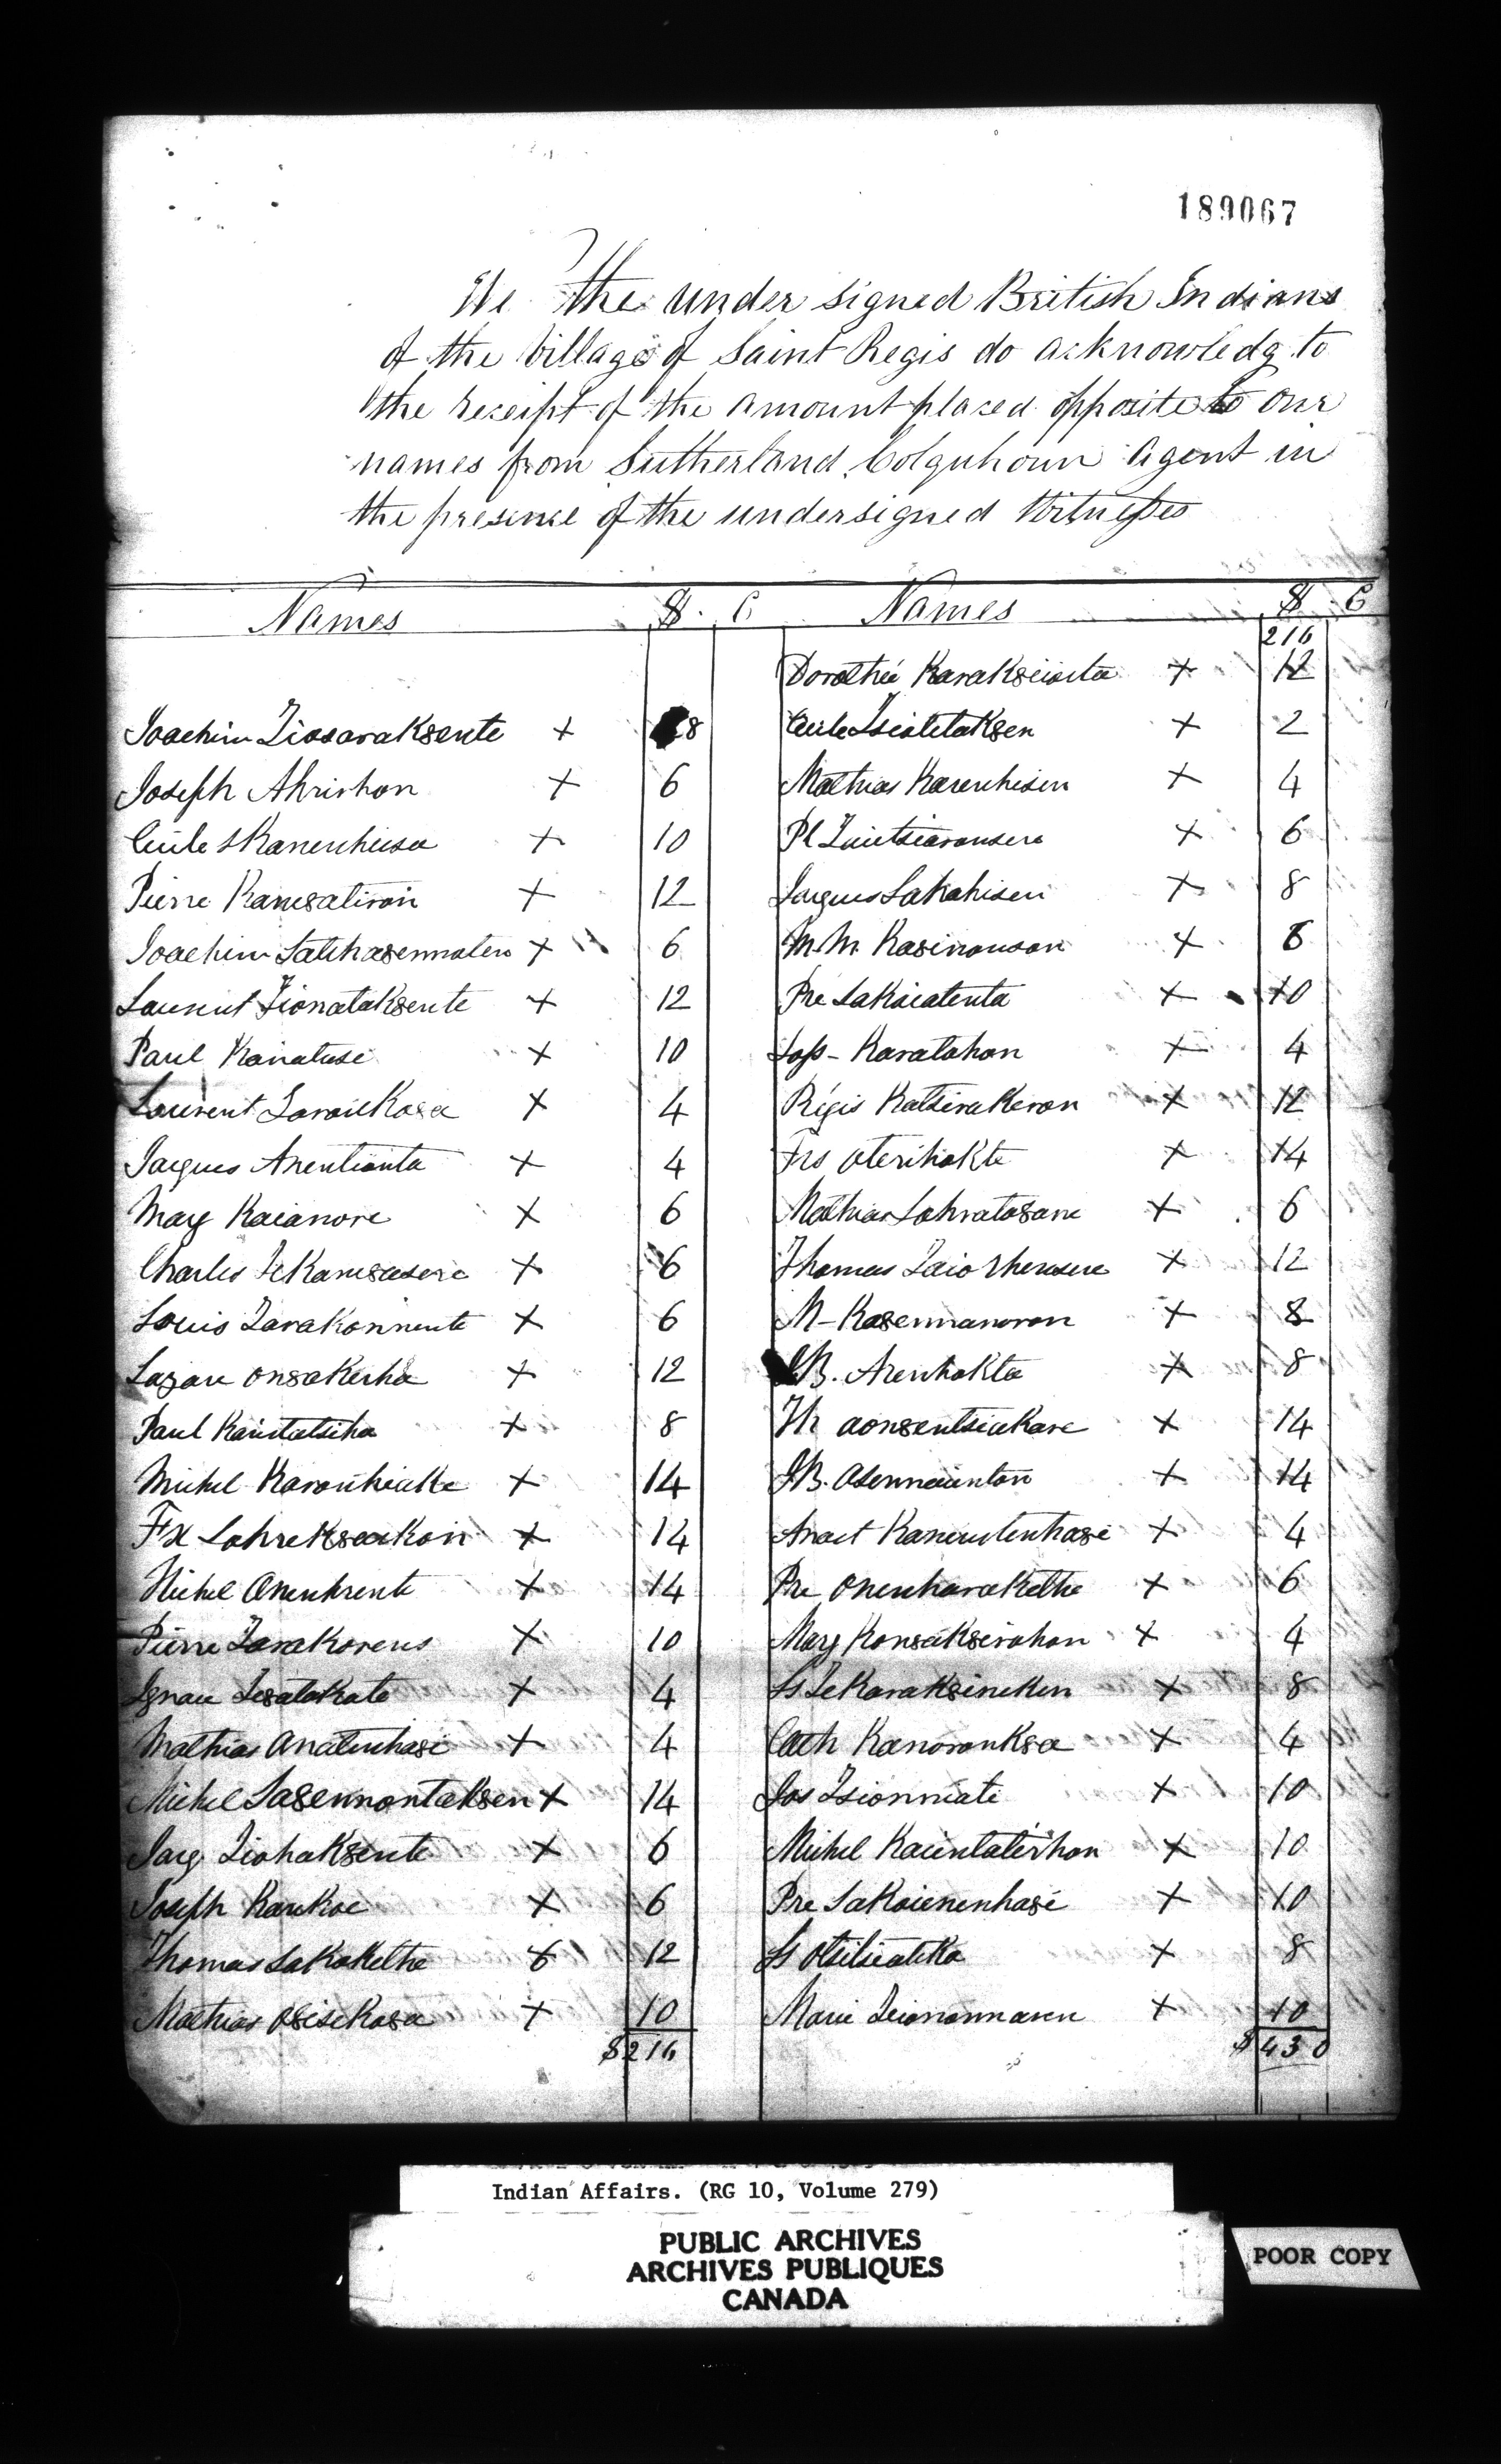 189067
We the under signed British Indians
of the Village of Saint Regis do acknowledg to
the receipt of the amount placed opposite to our
names from Sutherland Colquhoun Agent in
the presence of the undersigned Witnesses
Names $ C Names $ C
216
Dorothée Karakseiosta x 12
Joachim Tiosaraksente x 8
Cecile Tsiatetaksen x 2
Joseph Ahrirhon x 6
Mathias Karenhisen x 4
Cecile Skanenhiisa x 10
Pl Taietsiaronsere x 6
Pierre Kane8atiron x 12
Jaques Sakahisen x 8
Joachim Satekasennoten x 6
M.M. Kasinonson x 6
Laurent Tionataksente x 12
Pre Sakoiatenta x 10
Paul Kanatase x 10
Loss - Karatohon x 4
Laurent Saroiekosa x 4
Régis Katsirakeron x 12
Jacques Anentionta x 4
Frs Oterihokte x 14
May Kaianore x 6
Mathias Sohratosane x 6
Charles Tekane8asere x 6
Thomas Taiorhensere x 12
Louis Tarakonnente x 6
M - Ka8ennanoron x 8
Lazare Onsakerha x 12
JB. Arenhokta x 8
Paul Kaientatsiha x 8
Th Aonsentsiakare x 14
Michel Karonhiakte x 14
JB. Asennaienton x 14
Fx Sohrekseakon x 14
Anast Kanenstenhase x 4
Michel Onenhrente x 14
Pre Onenharakethe x 6
Pierre Tarakorens x 10
Mary Konsaksirohon x 4
Ignace Tesatakate x 4
Ls Tekaraksineken x 8
Mathias Anatenhase x 4
Cath Kanoronksa x 4
Michel Sasennontaksen x 14
Jos Tsionniate x 10
Jacq Tiohaksente x 6
Michel Kaientaterhon x 10
Joseph Karekoe x 6
Pre Sakoienenhase x 10
Thomas Sakoketha x 12
Ls Otsitsiateka x 8
Mathias Osisekosa x 10
Marie Teionomnanen x 10
$216
$430
Indian Affairs. (RG 10, Volume 279)
PUBLIC ARCHIVES
ARCHIVES PUBLIQUES
CANADA
POOR COPY